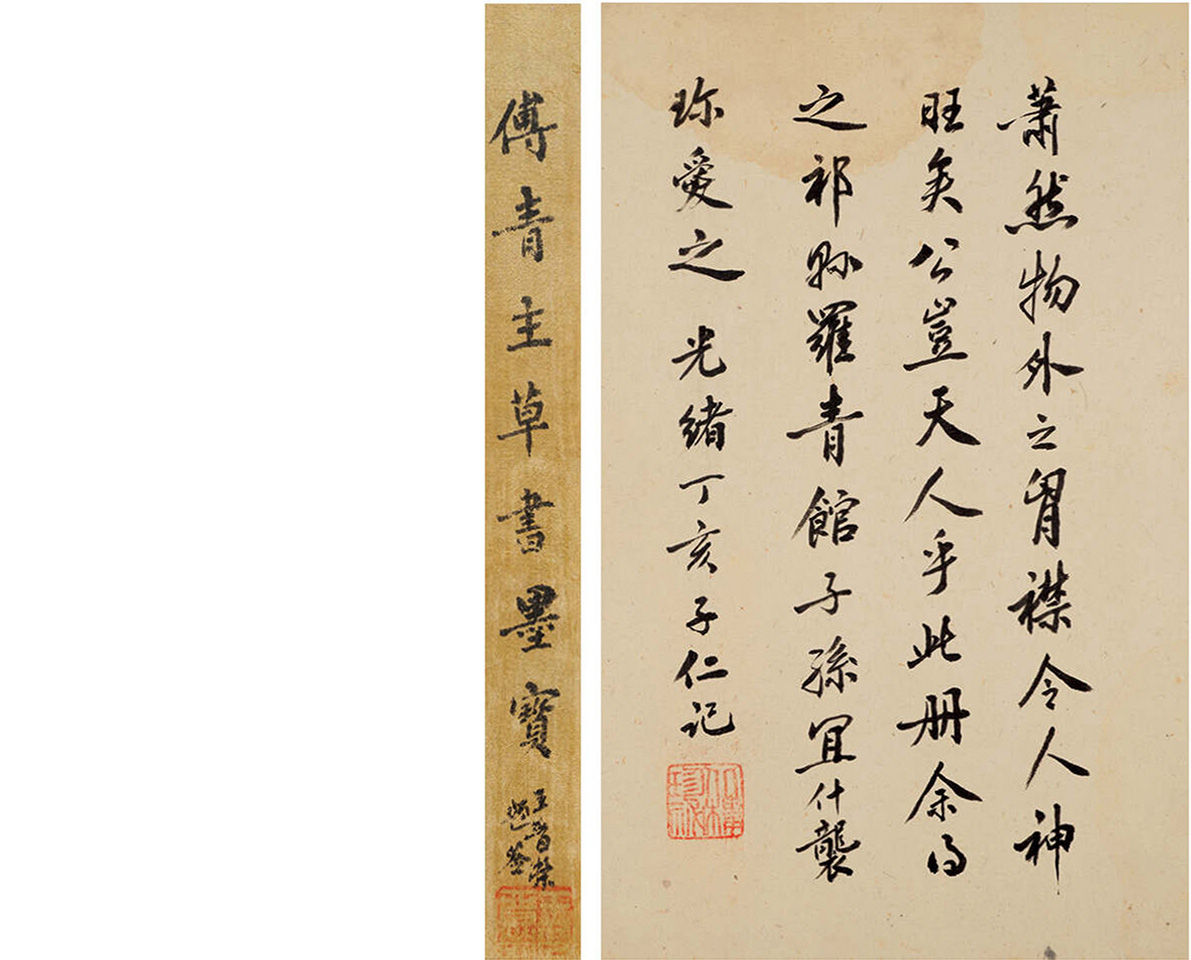 蕭然物外之胷襟令人神
旺矣公豈天人乎此册余得
之祁縣羅青館子孫宜什襲
珎愛之 光緒丁亥子仁記
傅青主草書墨寶
王晉榮
題簽